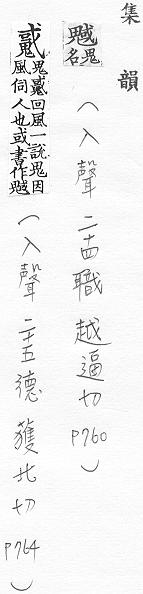 集韻
魊 鬼名 (入聲二十四職 越逼切 P760)
鬼回風一說鬼因
風伺人也或書作魊 (入聲二十五德 獲北切 P764)